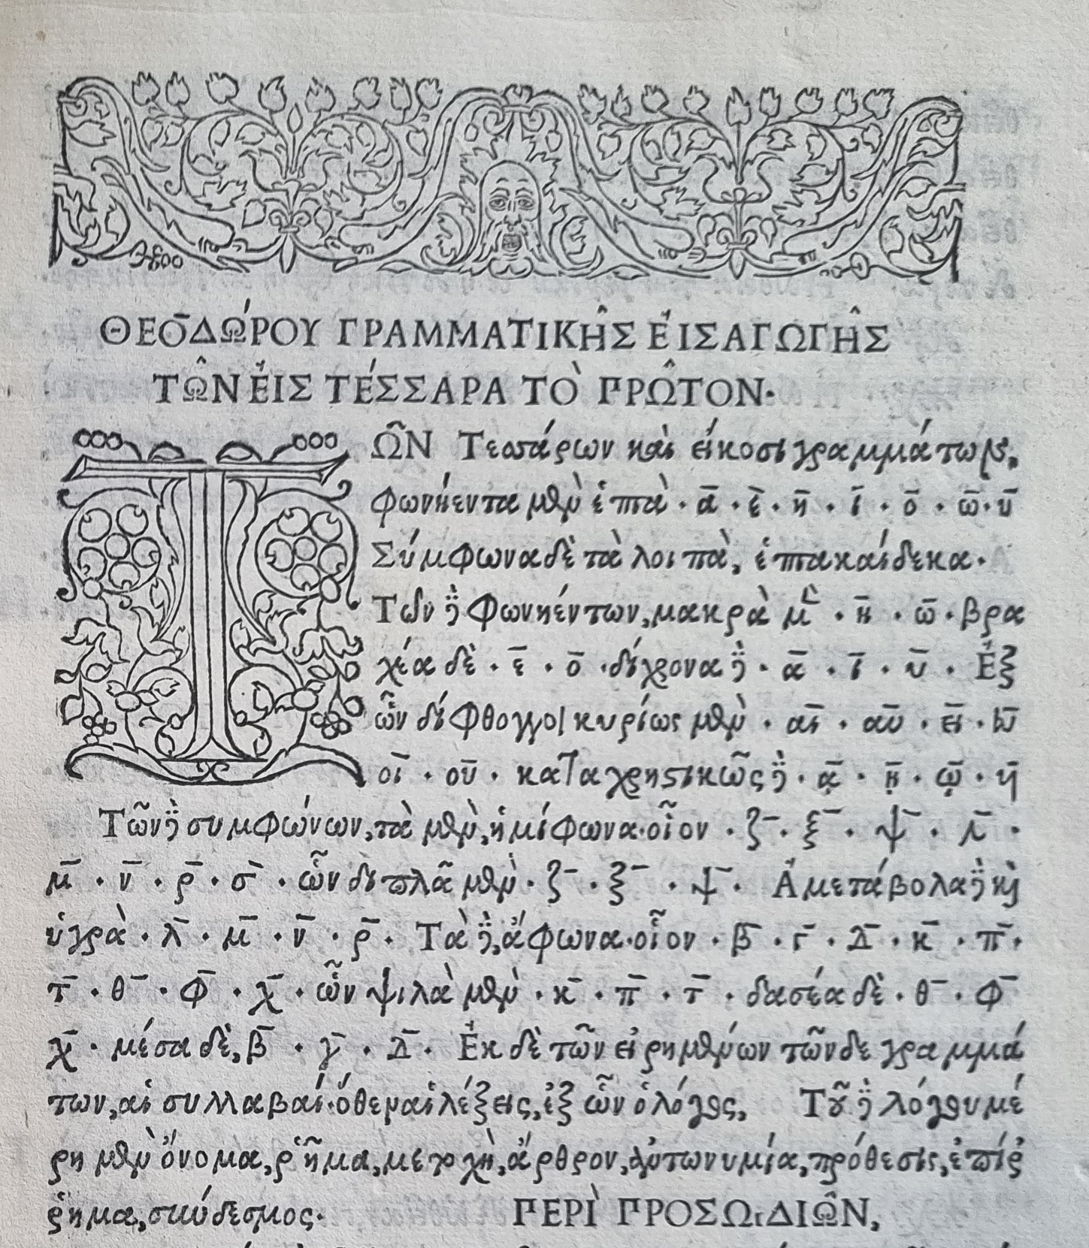 ΘΕΟΔΏΡΟΥ ΓΡΑΜΜΑΤΙΚΗ͂Σ ἘΙΣΑΓΩΓΗ͂Σ
ΤΩ͂Ν ἘΙΣ ΤΈΣΣΑΡΑ ΤῸ ΠΡΩ͂ΤΟΝ·
ΤΩ͂Ν Τεσσάρων καὶ εἴκοσι γραμμάτων,
φωνήεντα μὲν ἑπτὰ · α̅ · ε̅ · η̅ · ι̅ · ο̅ · ω̅ · υ̅
Σύμφωνα δὲ τὰ λοιπὰ, ἑπτακαίδεκα·
Τῶν δὲ φωνηέντων, μακρὰ μὲν · η̅ · ω̅ · βρα
χέα δὲ · ε̅ · ο̅ · δίχρονα δὲ · α̅ · ι̅ · υ̅ · Ἐξ
ὧν δίφθογγοι κυρίως μὲν · αι̅ · αυ̅ · ει̅ · ευ̅
οι̅ · ου̅ · καταχρηστικῶς δὲ · ᾳ̅ · ῃ̅ · ῳ̅ · υι̅
Τῶν δὲ συμφώνων, τὰ μὲν, ἡμίφωνα· οἷον · ζ̅ · ξ̅ · ψ̅ · λ̅ ·
μ̅ · ν̅ · ρ̅ · σ̅ · ὧν διπλᾶ μὲν · ζ̅ · ξ̅ · ψ̅ · Ἀμετάβολα δὲ καὶ
ὑγρὰ · λ̅ · μ̅ · ν̅ · ρ̅ · Τὰ δὲ, ἄφωνα· οἷον · β̅ · γ̅ · δ̅ · κ̅ · π̅ ·
τ̅ · θ̅ · φ̅ · χ̅ · ὧν ψιλὰ μὲν · κ̅ · π̅ · τ̅ · δασέα δὲ · θ̅ · φ̅
χ̅ · μέσα δὲ, β̅ · γ̅ · δ̅ · Ἐκ δὲ τῶν εἰρημένων τῶνδε γραμμά
των, αἱ συλλαβαί· ὅθεν αἱ λέξεις, ἐξ ὧν ὁ λόγος, Τοῦ δὲ λόγου μέ
ρη μὲν ὄνομα, ῥῆμα, μετοχὴ, ἄρθρον, ἀντωνυμία, πρόθεσις, ἐπίῤ
ῥημα, σύνδεσμος· ΠΕΡῚ ΠΡΟΣΩιΔΙΩ͂Ν,